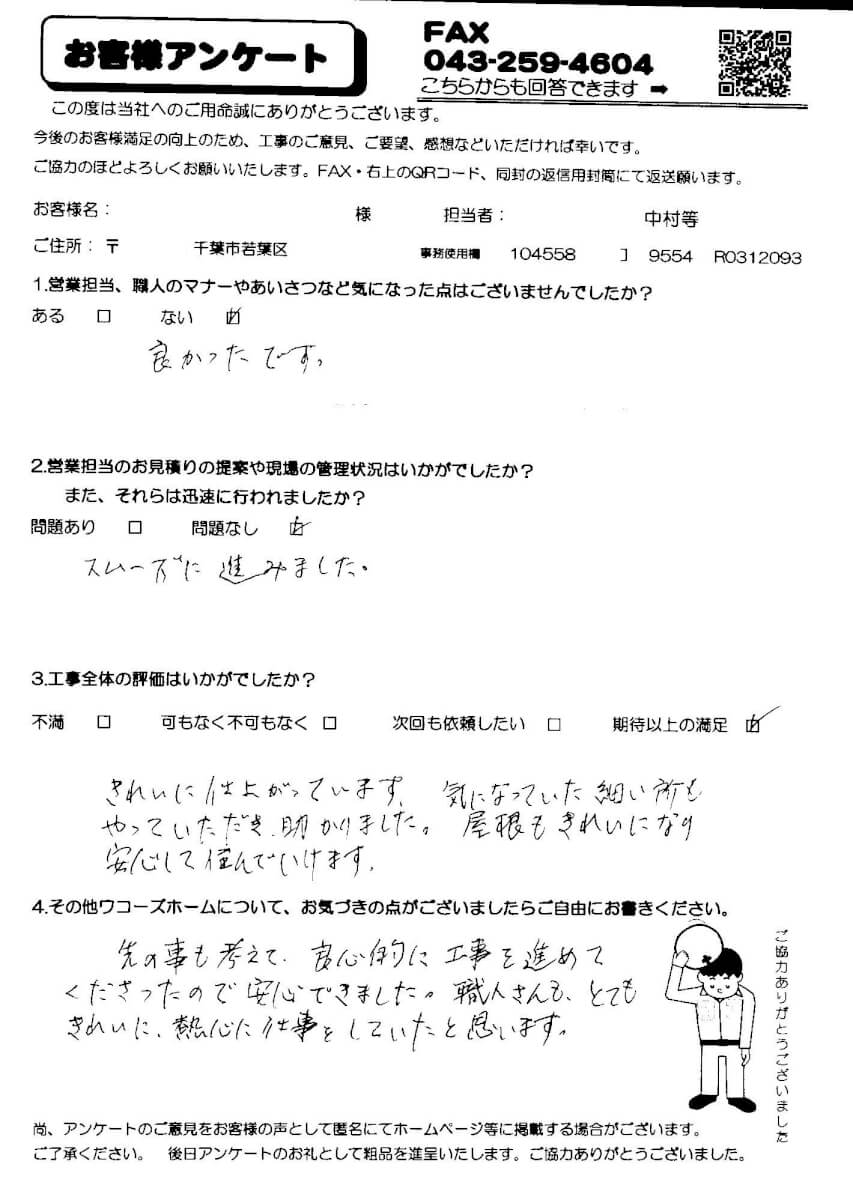 お客様アンケート
FAX
043-259-4604
こちらからも回答できます ➡
この度は当社へのご用命誠にありがとうございます。
今後のお客様満足の向上のため、工事のご意見、ご要望、感想などいただければ幸いです。
ご協力のほどよろしくお願いいたします。FAX・右上のQRコード、同封の返信用封筒にて返送願います。
お客様名： 様 担当者： 中村等
ご住所：〒 千葉市若葉区 事務使用欄 104558 ］ 9554 R0312093
1.営業担当、職人のマナーやあいさつなど気になった点はございませんでしたか？
ある □ ない ☑
良かったです。
2.営業担当のお見積りの提案や現場の管理状況はいかがでしたか？
また、それらは迅速に行われましたか？
問題あり □ 問題なし ☑
スムーズに進みました。
3.工事全体の評価はいかがでしたか？
不満 □ 可もなく不可もなく □ 次回も依頼したい □ 期待以上の満足 ☑
きれいに仕上がっています。 気になっていた細い所も
やっていただき、助かりました。 屋根もきれいになり
安心して住んでいけます。
4.その他ワコーズホームについて、お気づきの点がございましたらご自由にお書きください。
先の事も考えて、良心的に工事を進めて
くださったので安心できました。職人さんも、とても
きれいに、熱心に仕事をしていたと思います。
ご協力ありがとうございました
尚、アンケートのご意見をお客様の声として匿名にてホームページ等に掲載する場合がございます。
ご了承ください。 後日アンケートのお礼として粗品を進呈いたします。ご協力ありがとうございました。